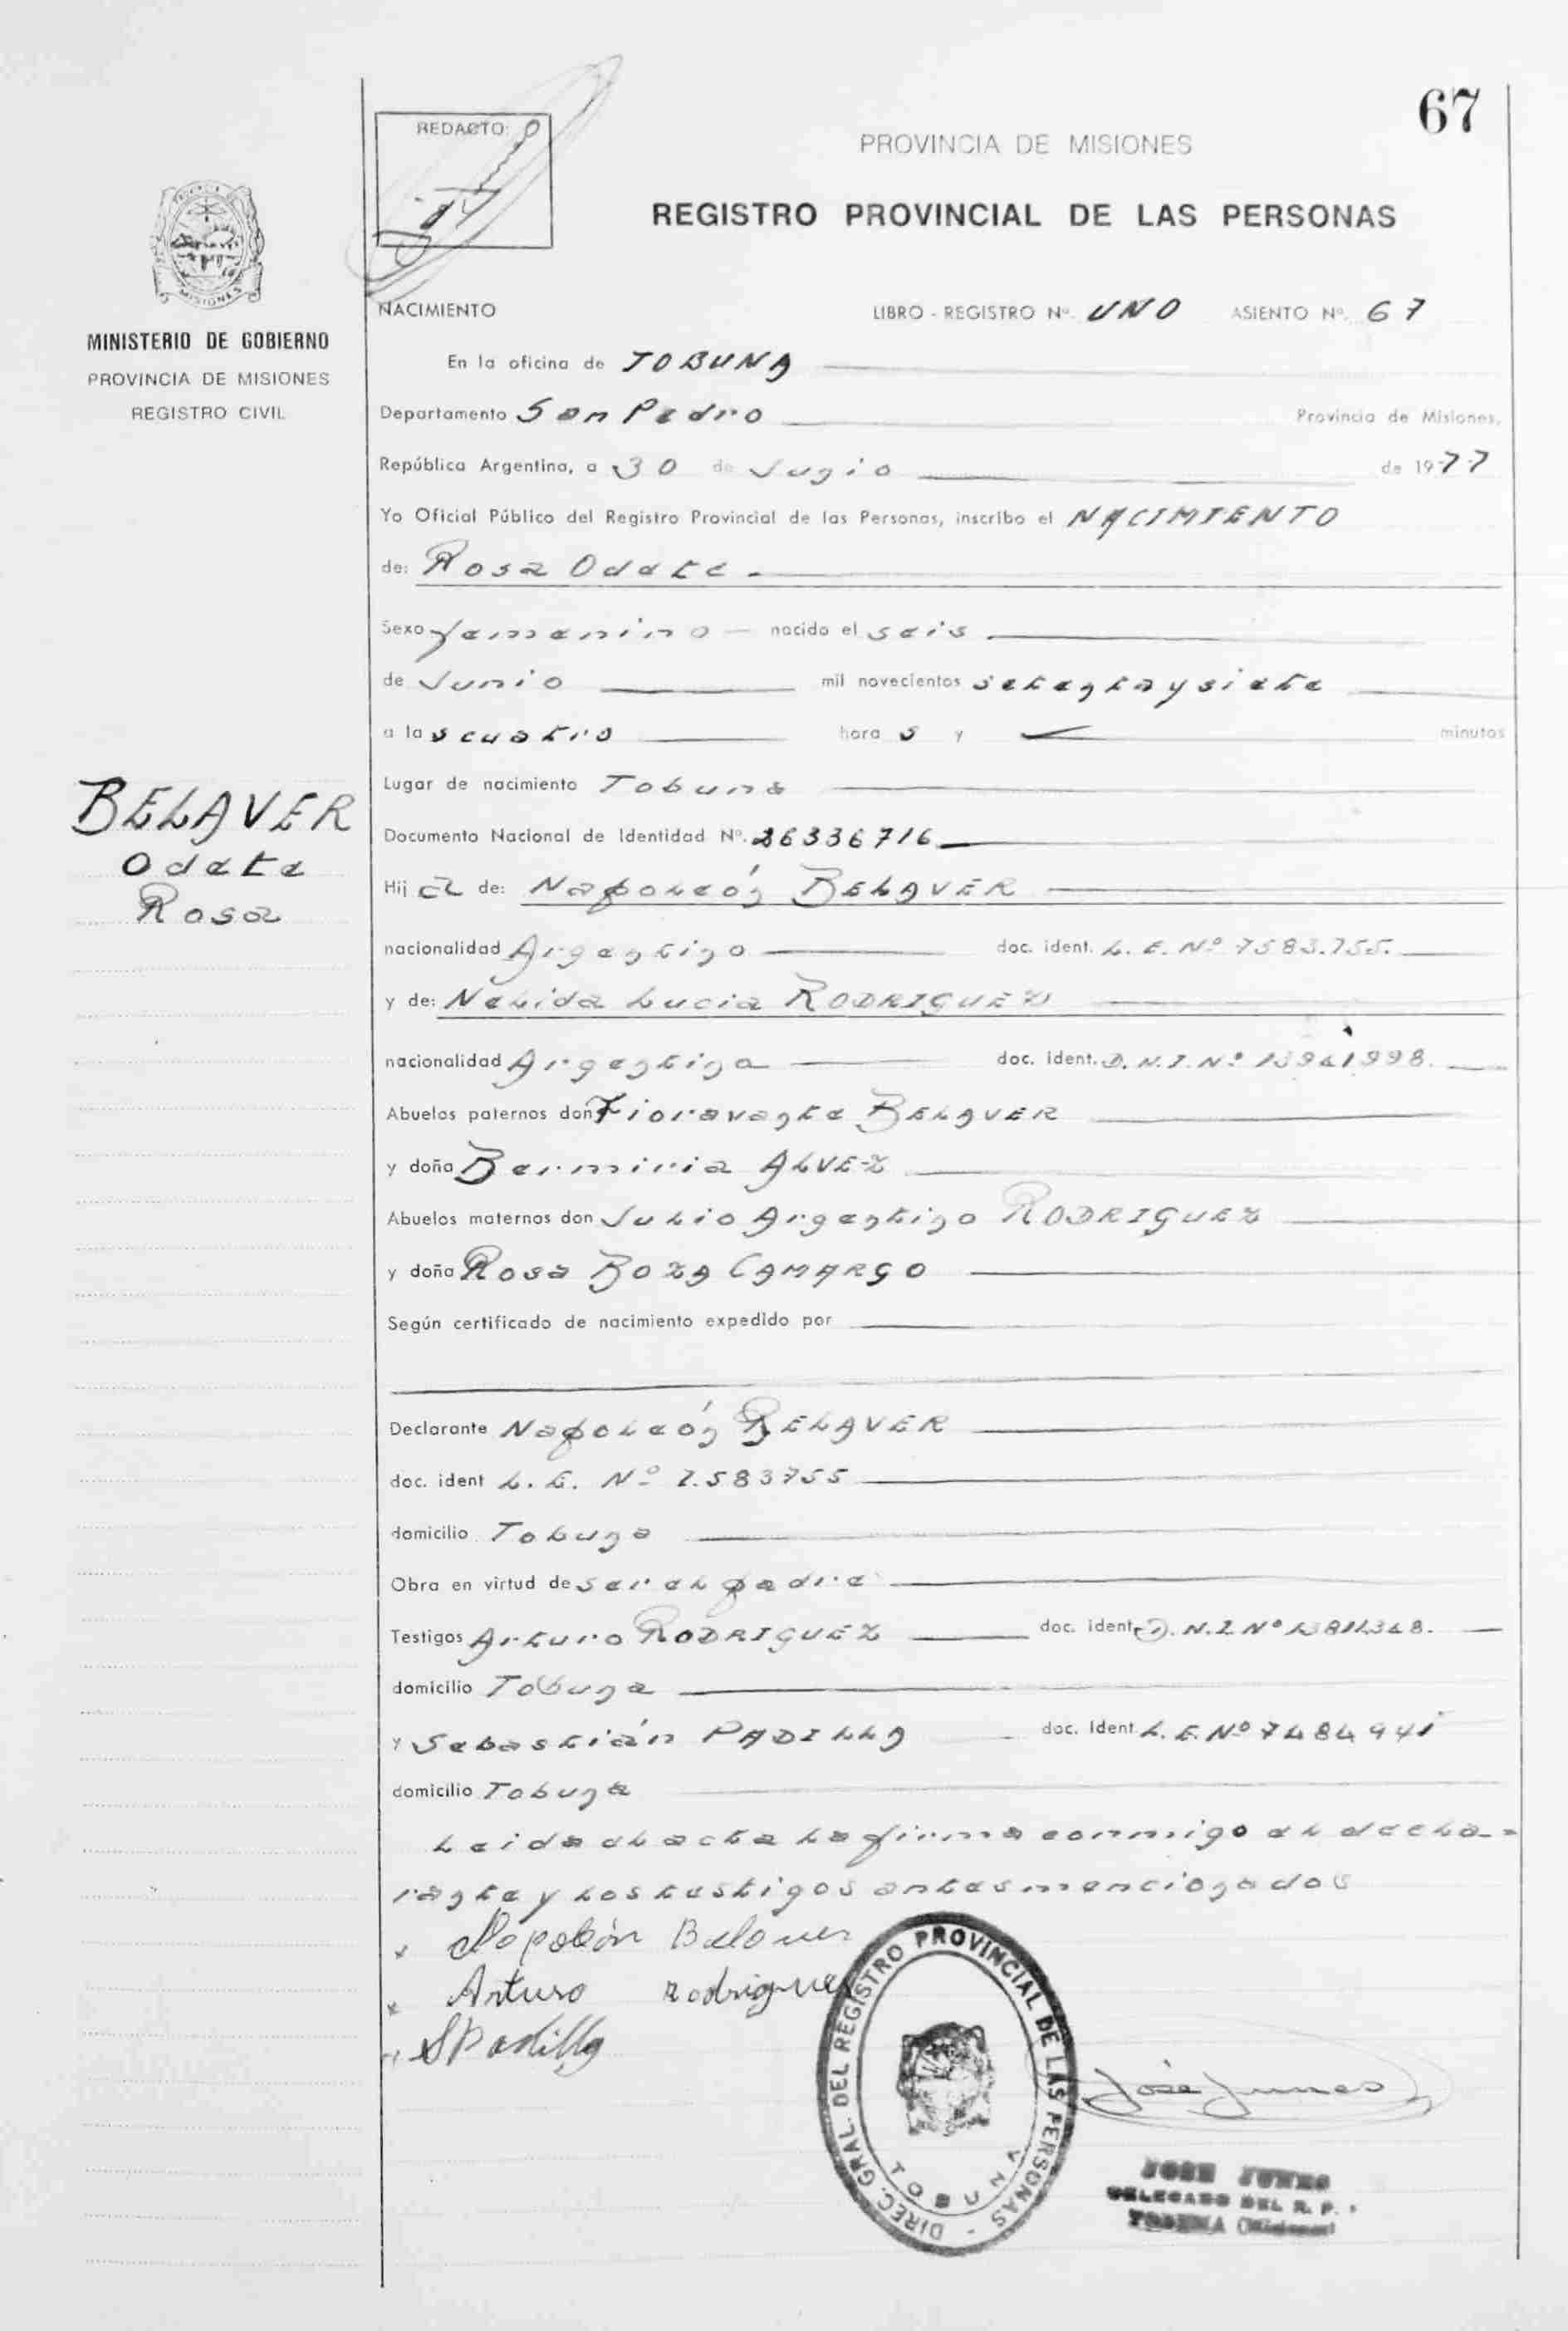 67
REDACTO:
PROVINCIA DE MISIONES
REGISTRO PROVINCIAL DE LAS PERSONAS
MISIONES
MINISTERIO DE GOBIERNO
PROVINCIA DE MISIONES
REGISTRO CIVIL
NACIMIENTO LIBRO - REGISTRO Nº. UNO ASIENTO Nº. 67
En la oficina de TOBUNA
Departamento San Pedro Provincia de Misiones,
República Argentina, a 30 de de 1977
Yo Oficial Público del Registro Provincial de las Personas, inscribo el NACIMIENTO
de: Rosa Odete.
Sexo femenino nacido el seis
de Junio mil novecientos setenta y siete
a las cuatro horas y minutos
Lugar de nacimiento Tobuna
BELAVER
Odete
Rosa
Documento Nacional de Identidad Nº. 26336716
Hija de: Napoleón BELAVER
nacionalidad Argentino doc. ident. L. E. Nº 7583.755.
y de: Nelida Lucia RODRIGUEZ
nacionalidad Argentina doc. ident. D. N. I. Nº
Abuelos paternos don Fioravante BELAVER
y doña Bermiria ALVEZ
Abuelos maternos don Julio Argentino RODRIGUEZ
y doña Rosa BOZA CAMARGO
Según certificado de nacimiento expedido por
Declarante Napoleón BELAVER
doc. ident L. E. Nº 7.583755
domicilio Tobuna
Obra en virtud de ser el padre
Testigos Arturo RODRIGUEZ doc. ident. D. N. I. Nº
domicilio Tobuna
y Sebastián PADILLA doc. ident. L. E. Nº 7484941
domicilio Tobuna
Leida el acta la firma conmigo el decla-
rante y los testigos antes mencionados
Napoleón Belaver
Arturo Rodriguez
S Padilla
DIREC. GRAL. DEL REGISTRO PROVINCIAL DE LAS PERSONAS -
TOBUNA
José Junes
JOSE JUNES
DELEGADO DEL R. P.
TOBUNA (Misiones)